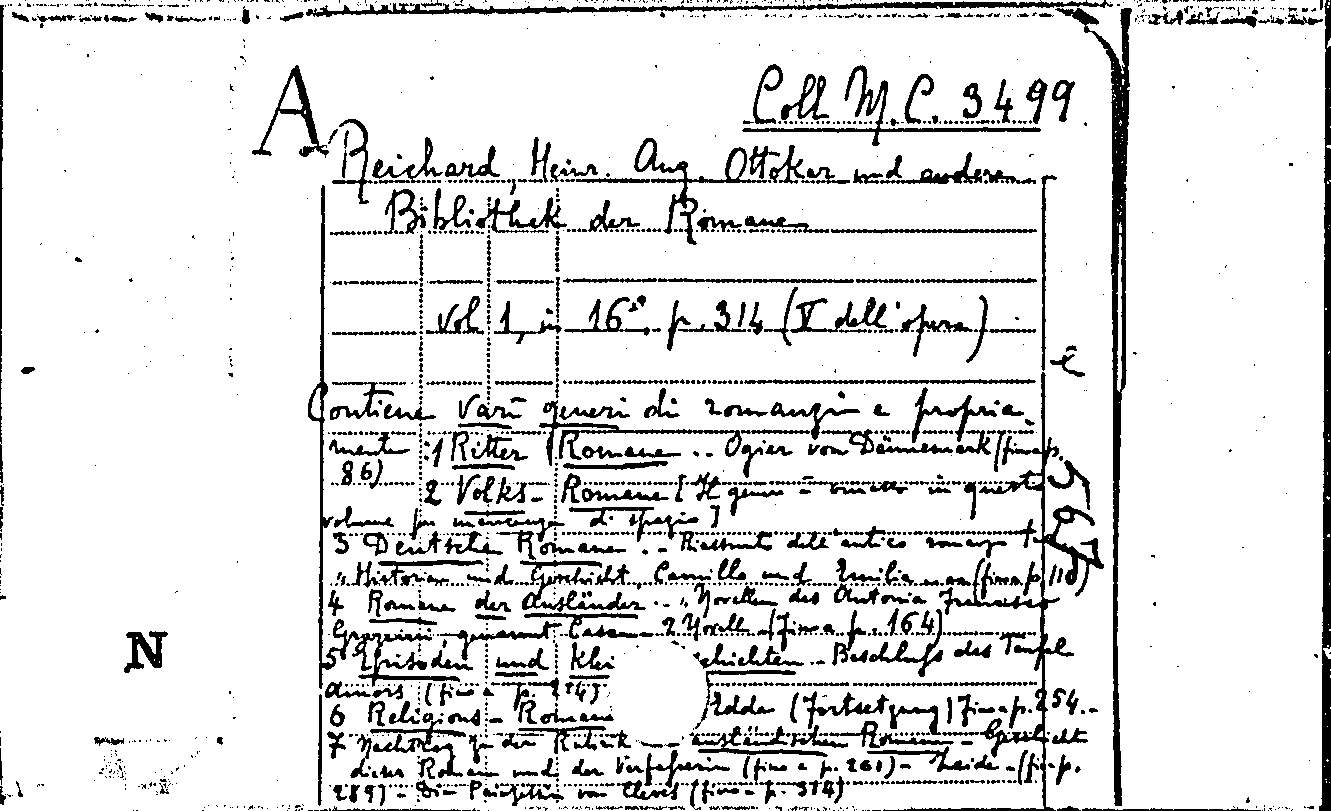 A
Coll M.C. 3499
Reichard, Heinr. Aug. Ottokar und andere
Bibliothek der Romane
vol 1, in 16°. p. 314 (V dell'opera)
è
Contiene varī generi di romanzi e propria-
mente :1 Ritter Romane .. Ogier von Dännemark (fino a p.
86)
2 Volks- Romane [Il genere è omesso in questo
volume per mancanza di spazio]
3 Deutsche Romane .. Riassunto dell'antico romanzo
"Historien und Geschicht, Camillo und Emilia (fino a p. 118)
4 Romane der Ausländer .. "Novellen des Antonio Francesco
Grazzini, genannt 2 Novelle (fino a p. 164)
5 Episoden und klei chichten - Beschluss des Teufel
amors (fino a p. 214)
6 Religions- Romane Edda (Fortsetzung) fino a p. 254.-
7 Nachtrag zu der Rubrik ausländischen Romane - Geschichte
dieses Romans und der Verfasserin (fino a p. 261) - Zaide - (fino a p.
289) - Die Prinzessin von Cleves (fino a p. 314)
N